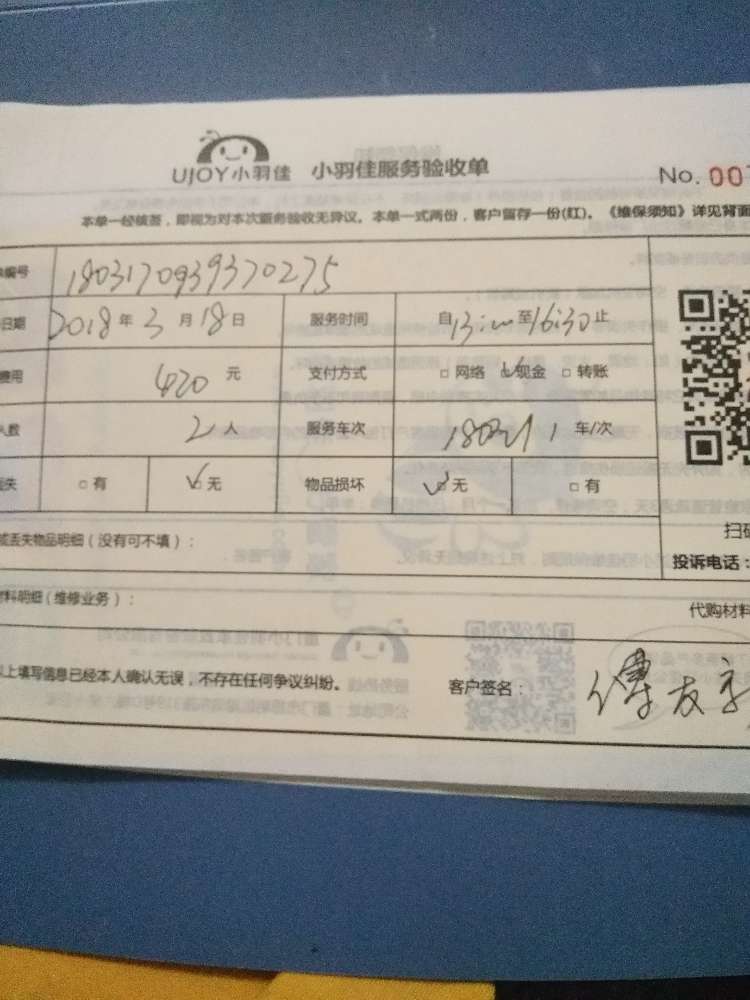 UJOY小羽佳 小羽佳服务验收单
No. 00
本单一经填签，即视为对本次服务验收无异议。本单一式两份，客户留存一份(红)。《维保须知》详见背面
编号 1803170939370275
日期 2018年3月18日 服务时间 自13:00至16:30止
费用 420元 支付方式 □网络 ☑现金 □转账
人数 2人 服务车次 1车/次
丢失 □有 ☑无 物品损坏 ☑无 □有
或丢失物品明细（没有可不填）：
扫码
投诉电话：
材料明细（维修业务）：
代购材料
以上填写信息已经本人确认无误，不存在任何争议纠纷。 客户签名：